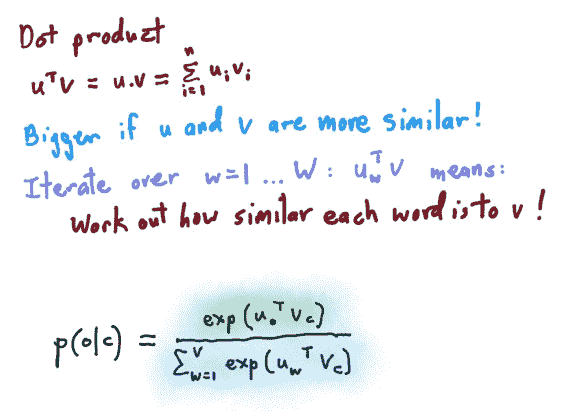 Dot product
uᵀv = u.v = Σⁿᵢ₌₁ uᵢvᵢ
Bigger if u and v are more similar!
Iterate over w=1 ... W : u_wᵀ v means:
Work out how similar each word is to v!
p(o|c) = exp(u_oᵀ v_c) / Σ^V_{w=1} exp(u_wᵀ v_c)